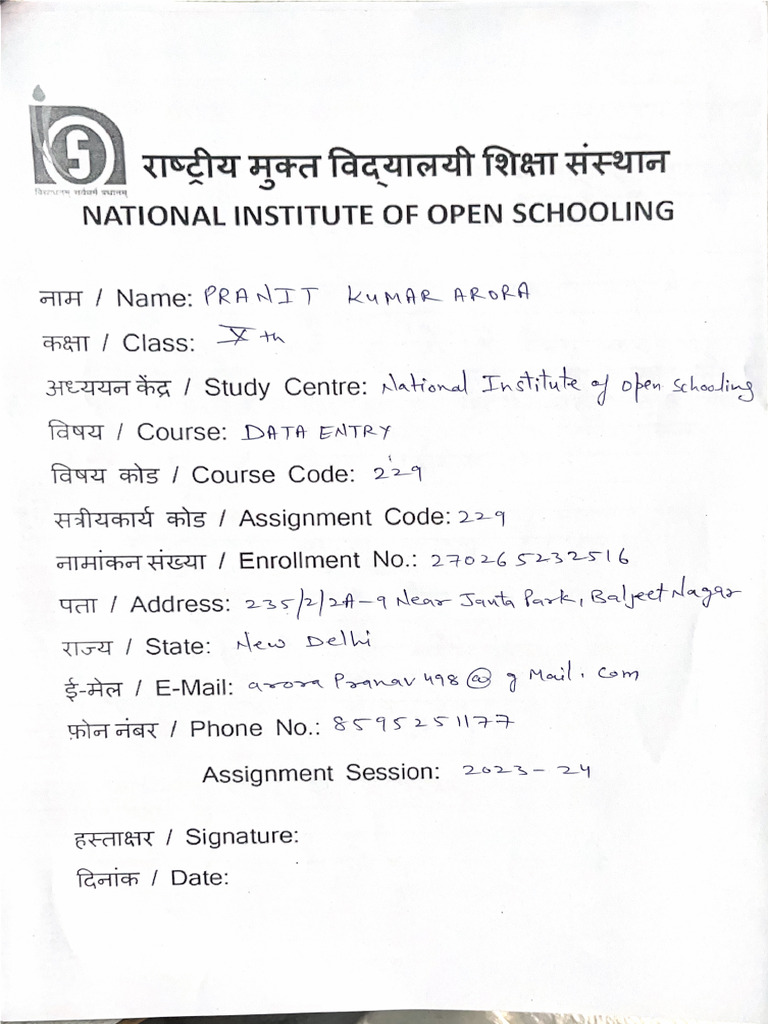 राष्ट्रीय मुक्त विद्यालयी शिक्षा संस्थान
विद्याधनम् सर्वधनं प्रधानम्
NATIONAL INSTITUTE OF OPEN SCHOOLING
नाम / Name: PRANIT KUMAR ARORA
कक्षा / Class: Xth
अध्ययन केंद्र / Study Centre: National Institute of open schooling
विषय / Course: DATA ENTRY
विषय कोड / Course Code: 229
सत्रीयकार्य कोड / Assignment Code: 229
नामांकन संख्या / Enrollment No.: 270265232516
पता / Address: 235/2/2A-9 Near Janta Park, Baljeet Nagar
राज्य / State: New Delhi
ई-मेल / E-Mail: arora Pranav498@gMail.com
फ़ोन नंबर / Phone No.: 8595251177
Assignment Session: 2023-24
हस्ताक्षर / Signature:
दिनांक / Date: